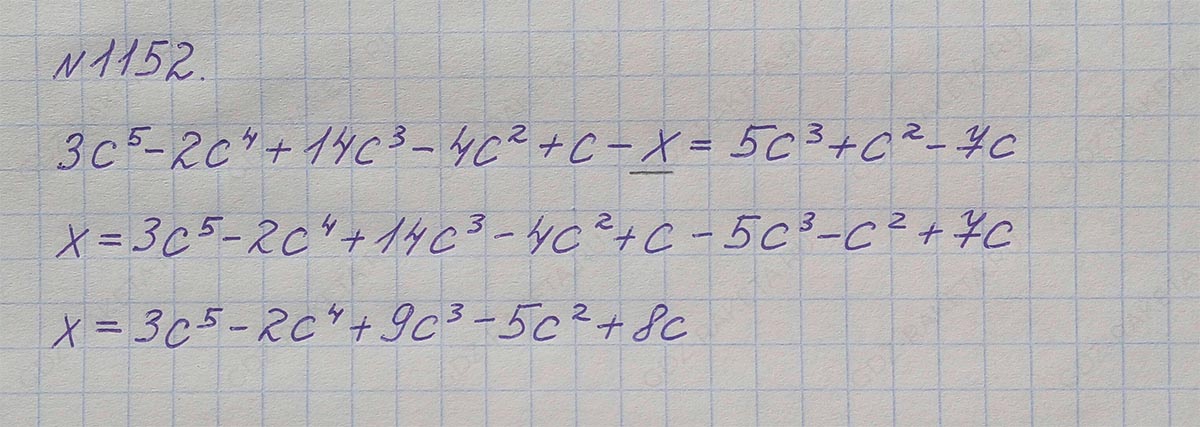 №1152.
3c⁵-2c⁴+14c³-4c²+c-x=5c³+c²-7c
x=3c⁵-2c⁴+14c³-4c²+c-5c³-c²+7c
x=3c⁵-2c⁴+9c³-5c²+8c